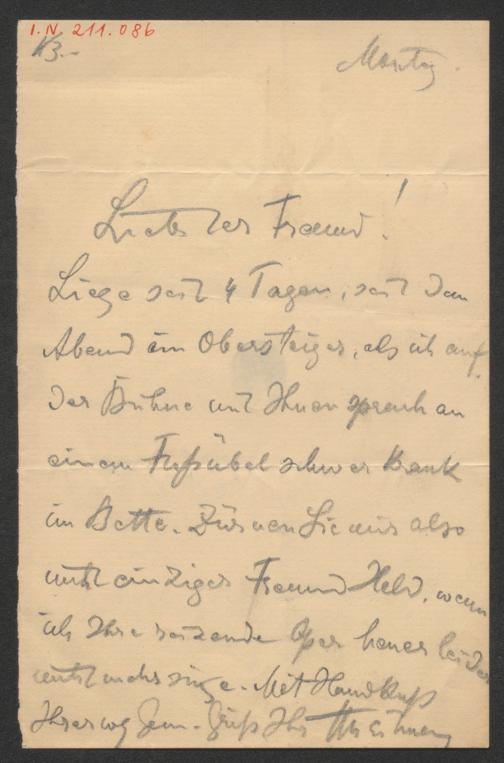 I.N. 211.086
Montag.
Liebster Freund!
Liege seit 4 Tagen, seit dem
Abend im Obersteiger, als ich auf
der Bühne mit Ihnen sprach an
einem Fußübel schwer krank
im Bette. Zürnen Sie mir also
nicht einziger Freund Held, wenn
ich Ihre reizende Oper heuer leider
nicht mehr singe. Mit Handkuß
Gruß Ihr